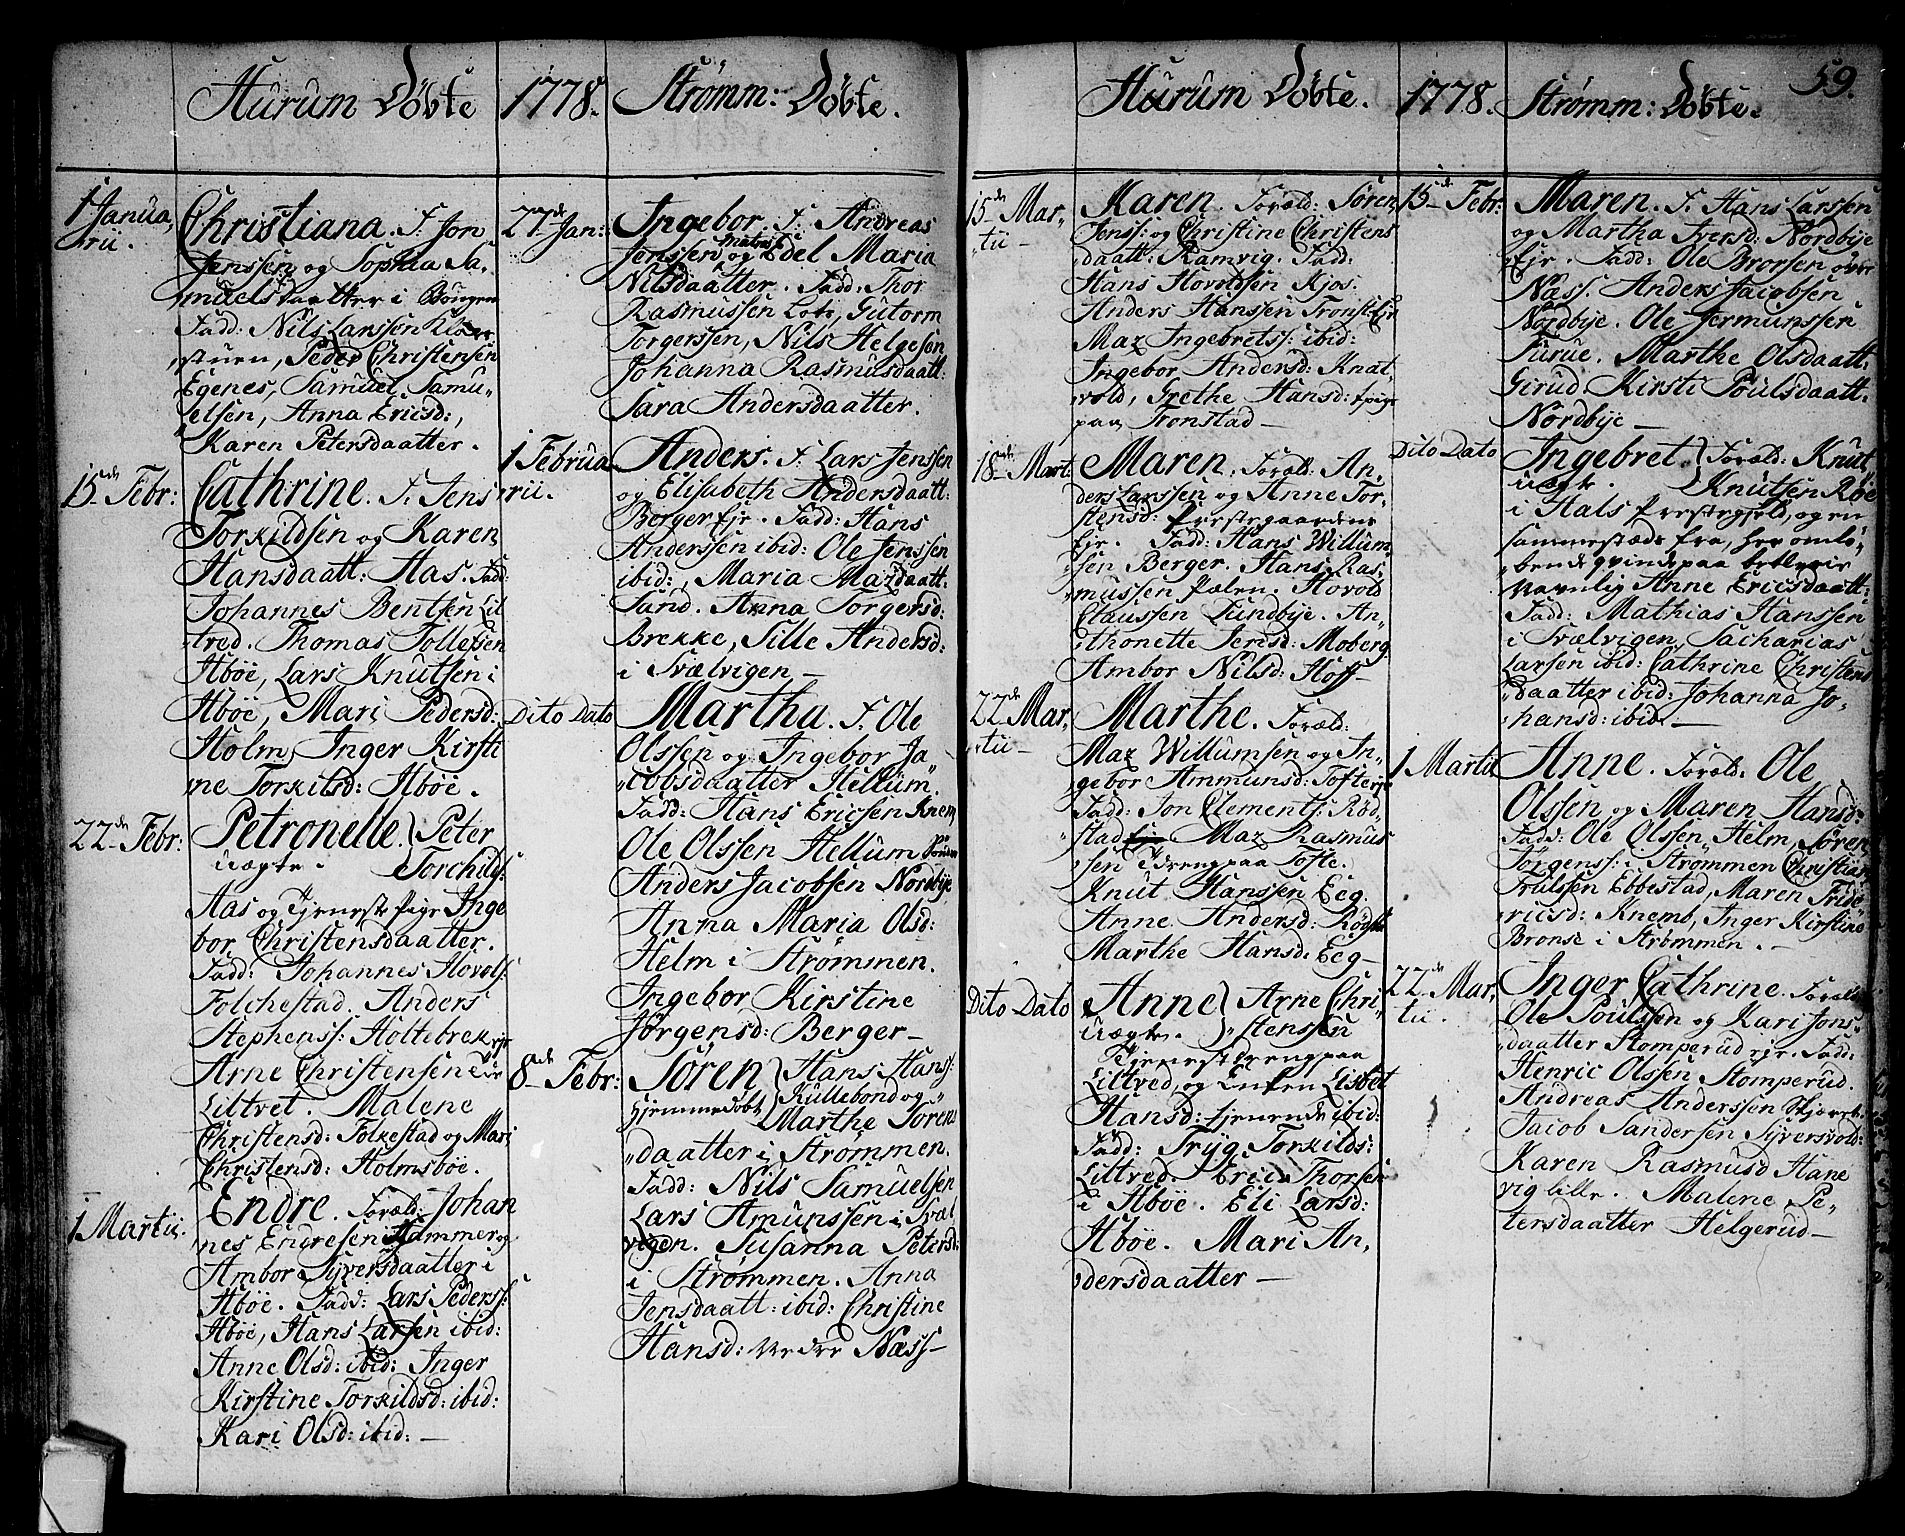 Hurum Døbte
1 Janua,
rii.
Christiana. F. Jon
Jenssen og Sophia Sa,
muelsdaatter i
Fadd: Nils Larssen
stuen, Peder Christensen
Egenes, Samuel Samu,,
elsen, Anna Ericsd:,
Karen Petersdaatter.
15de Febr:
Cathrine. F. Jens
Torkildsen og Karen
Hansdaatt: Aas. Fadd:
Johannes Bentsen Lil
tred. Thomas Tollefsen
Aböe, Lars Knutsen i
Aböe, Mari Pedersd:
Holm, Inger Kirsti
ne Torkilsd: Aböe.
22de Febr:
Petronelle. } Peter
uægte. Torchilds:
Aas og Tjeneste Pige Inge
bor Christensdaatter.
Fadd: Johannes Hovols:
Folchestad. Anders
Stephenss: Holtebrek ejr
Arne Christensen
Liltvet. Malene
Christensd: Folkestad og Mari
Christensd: Holmsböe.
1 Martii.
Endre. Foræld: Johan
nes Endresen Hammer og
Ambor Syversdaatter i
Aböe. Fadd: Lars Pederss:
Aböe, Hans Larsen ibid:
Anne Olsd: ibid: Inger
Kirstine Torkildsd: ibid:
Kari Olsd: ibid: —
1778. Strømm: Døbte.
27de Jan:
Ingebor. F. Andreas
Jenssen Matros og Edel Maria
Nilsdaatter. Fadd: Thor
Rasmussen Lots, Gutorm
Torgerssen, Nils Helgesen
Johanna Rasmusdaatt:
Sara Andersdaatter.
1 Februa
rii.
Anders. F. Lars Jenssen
og Elisabeth Andersdaatt:
Berger Ejr. Fadd: Hans
Anderssen ibid: Ole Jenssen
ibid:, Maria Mazdaatt:
Sand. Anna Torgersd:
Brekke, Sille Andersd:
i Svælvigen —
Dito Dato
Martha. F. Ole
Olssen og Ingebor Ja,,
cobsdaatter Hellum.
Fadd: Hans Ericsen Knem,
Ole Olssen Hellum
Anders Jacobsen Nordbye
Anna Maria Olsd:
Helm i Strømmen.
Ingebor Kirstine
Jørgensd: Berger —
8de Febr:
Søren } Hans Hans:
hjemmedöbt Rullebond og
Marthe Sorens
daatter i Strømmen.
Fadd: Nils Samuelsen
Lars Amunssen i Svæl
vigen. Susanna Petersd:
i Strømmen. Anna
Jensdaatt: ibid: Christine
Hansd: Nedre Næss —
Hurum Døbte.
15de Mar,
tii —
Karen. Foræld: Sören
Jenss: og Christine Christens
daatt: Ramvig. Fadd:
Hans Hovoldsen Kjos.
Anders Hanssen Tronst: Ejr
Maz Ingebretss: ibid:
Ingebor Andersd: Knat,
vold, Grethe Hansd: pige
paa Tronstad —
18de Mart:
Maren. Foræld: An,
ders Larssen og Anne Tor,
stensd: Prestegaardens
Ejr. Fadd: Hans Willum,
sen Berger. Hans Ras,
mussen Pælen. Hovold
Claussen Sundbye. An,
thonette Jensd: Moberg
Ambor Nilsd: Hoff —
22de Mar,
tii —
Marthe. Foræld:
Maz Willumsen og In,
gebor Ammunsd: Tofte ejr
Fadd: Jon Clements: Röd,
stad Maz Rasmus
sen Dreng paa Tofte.
Knut Hanssen Ecg.
Anne Andersd:
Marthe Hansd: Ecg —
Dito Dato
Anne } Arne Chri,
uægte. stenssen
Tjenestdreng paa
Liltved, og Enken Lisbet
Hansd: tjenende ibid:
Fadd: Tryg Torkilds:
Liltved. Eric Thorsen
i Aböe. Eli Larsd:
Aböe. Mari An,
dersdaatter —
1778. Strømm: Døbte. 59.
15de Febr:
Maren. F. Hans Larssen
og Martha Iversd: Nordbye
Ejr. Fadd: Ole Brorsen över
Næss. Anders Jacobsen
Nordbye. Ole Jermunssen
Furue. Marthe Olsdaatt:
Girud. Kirsti Poulsdaatt:
Nordbye —
Dito Dato
Ingebret } Foræld: Knut
uægte. Knutsen Röe
i Hals Prestegjeld, og en
sammestæds fra, her omlö,
bende qvinde paa betlerie
navnlig Anne Ericsdaatt:
Fadd: Mathias Hanssen
i Svælvigen, Zacharias
Larsen ibid: Cathrine Christens
daatter ibid: Johanna Jo,
hansd: ibid. —
1 Martii
Anne. Foræld: Ole
Olssen og Maren Hansd:
Fadd: Ole Olssen Helm, Sören
Jorgenss: i Strömmen Christian
Trulssen Ebbestad, Maren Fride
ricsd: Knemb, Inger Kirstine
Bronse i Strømmen. —
22de Mar,
tii.
Inger Cathrine. Foræld:
Ole Poulssen og Kari Jons,,
daatter Stomperud ejr. Fadd:
Henric Olssen Stomperud.
Andreas Anderssen
Jacob Sandersen Syversvold:
Karen Rasmusd Hane
vig lille. Malene Pe,
tersdaatter Helgerud —